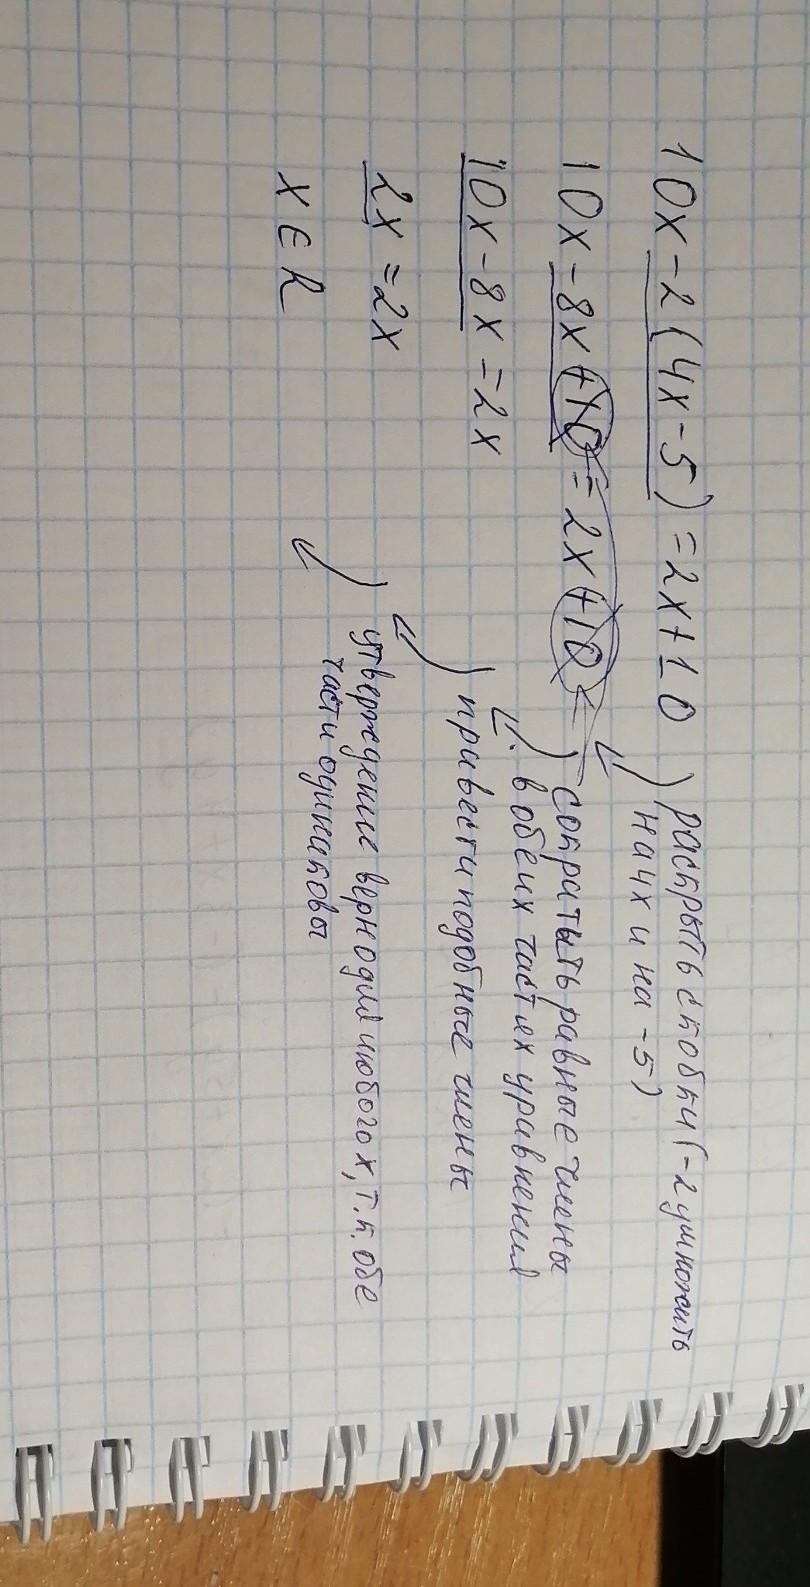 10x-2(4x-5)=2x+10
раскрыть скобки (-2 умножить
на 4x и на -5)
10x-8x+10=2x+10
сократить равные члены
в обеих частях уравнения
10x-8x=2x
привести подобные члены
2x=2x
утверждение верно для любого x, т.к. обе
части одинаковы
x∈R